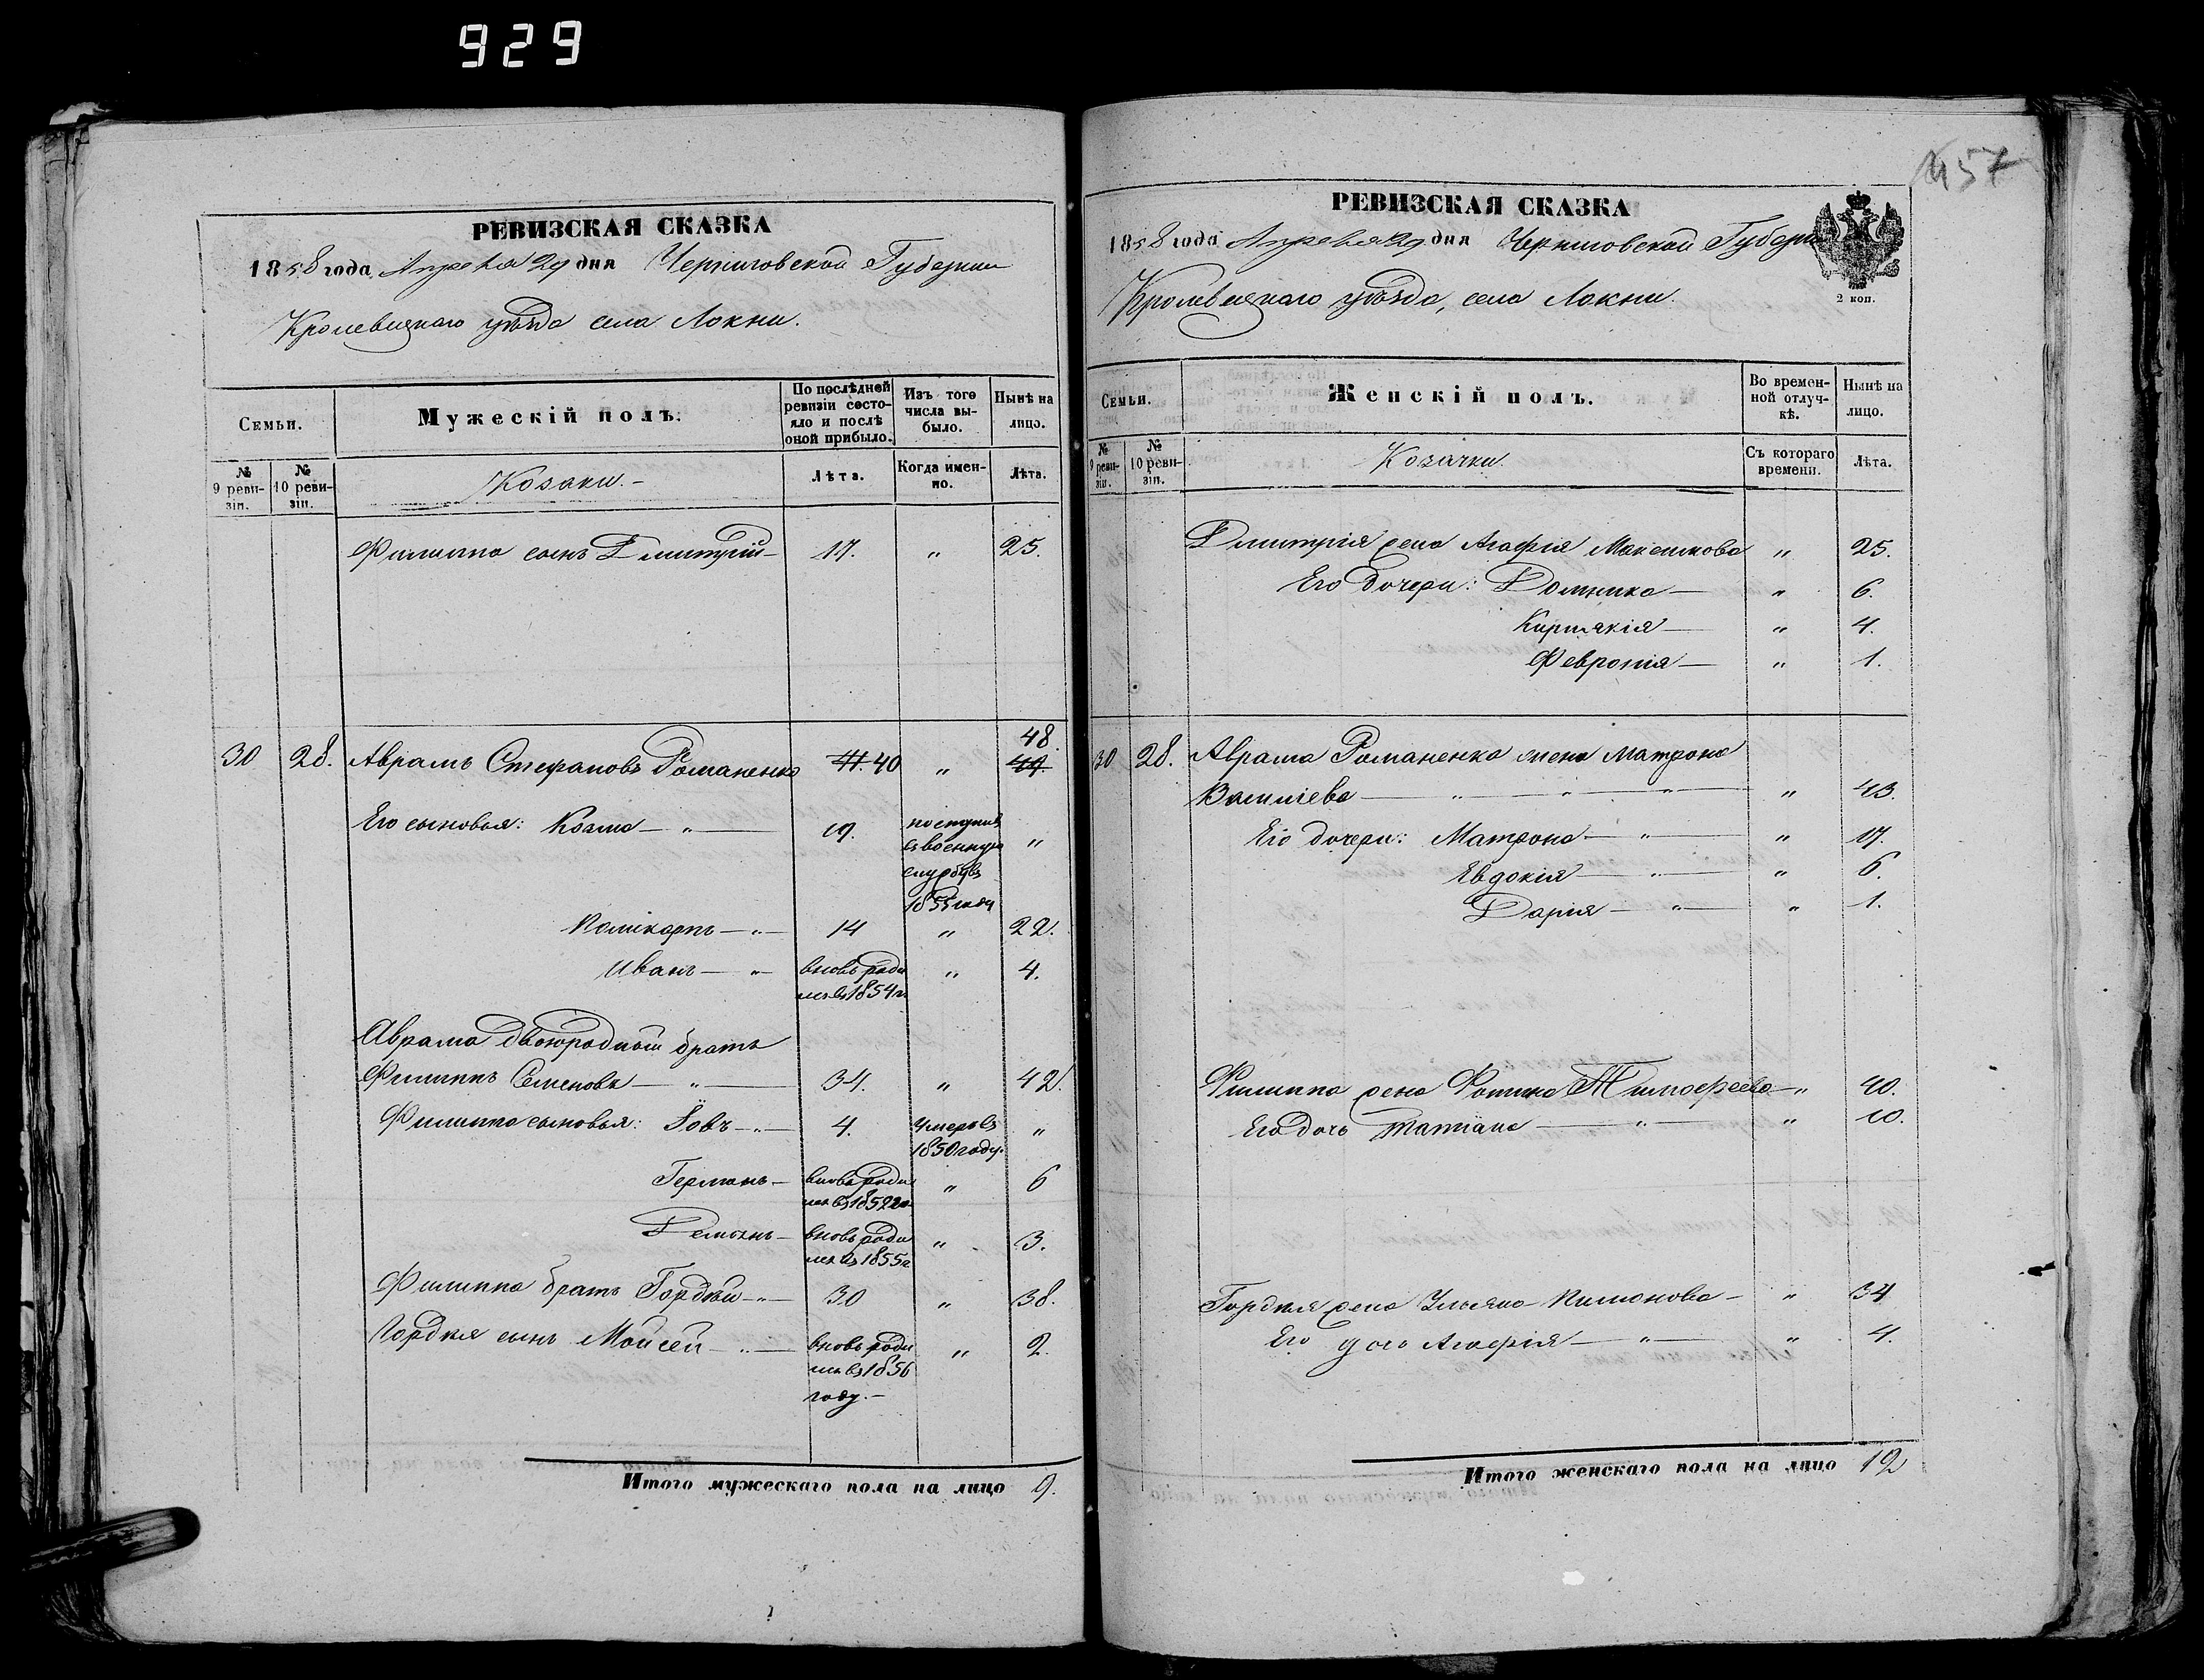 929
РЕВИЗСКАЯ СКАЗКА
1858 года Апреля 29 дня Черниговской Губернии
Кролевецкаго уѣзда села Локни.
Семьи.
Мужескій полъ.
По послѣдней ревизіи состояло и послѣ оной прибыло.
Изъ того числа выбыло.
Нынѣ на лицо.
№ 9 ревизіи.
№ 10 ревизіи.
Козаки.-
Лѣта.
Когда именно.
Лѣта.
Филиппа сынъ Димитрій- 17. " 25.
48.
30 28. Аврамъ Стефановъ Романенко 41. 40 " 49.
Его сыновья: Козма- " - 19. поступилъ "
въ военную
службу въ
1855 году
Поликарпъ-"- 14 " 22.
Иванъ- "- вновь роди " 4.
лся въ 1854 г.
Аврама двоюродный братъ
Филиппъ Семеновъ- " - 34. " 42.
Филиппа сыновья: Іовъ-"- 4. умеръ въ "
1850 году.
Германъ- вновь роди " 6
лся въ 1852 го
Демьянъ- вновь роди " 3.
лся въ 1855 г
Филиппа братъ Гордѣй-"- 30 " 38.
Гордѣя сынъ Мойсей- "- вновь роди " 2.
лся въ 1856
году.-
Итого мужескаго пола на лицо 9.
457
РЕВИЗСКАЯ СКАЗКА
1858 года Апреля 29 дня Черниговской Губерн
Кролевецкаго уѣзда, села Локни.
2 коп.
Семьи.
Женскій полъ.
Во временной отлучкѣ.
Нынѣ на лицо.
№ 9 ревизіи.
№ 10 ревизіи.
Козачки.
Съ котораго времени.
Лѣта.
Димитрія жена Агафія Максимова " 25.
Его дочери: Домника- " 6.
Киріякія- " 4.
Февронія- " 1.
30 28. Аврама Романенка жена Матрона
Василіева- " - " - " - " 43.
Его дочери: Матрона- " - " 17.
Евдокія- " - " 6.
Дарія- " - " 1.
Филиппа жена Фотина Тимофеева-" 40.
Его дочь Татіана- " - " 10.
Гордѣя жена Ульяна Пимонова- " 34
Его дочь Агафія- " - " 4.
Итого женскаго пола на лицо 12